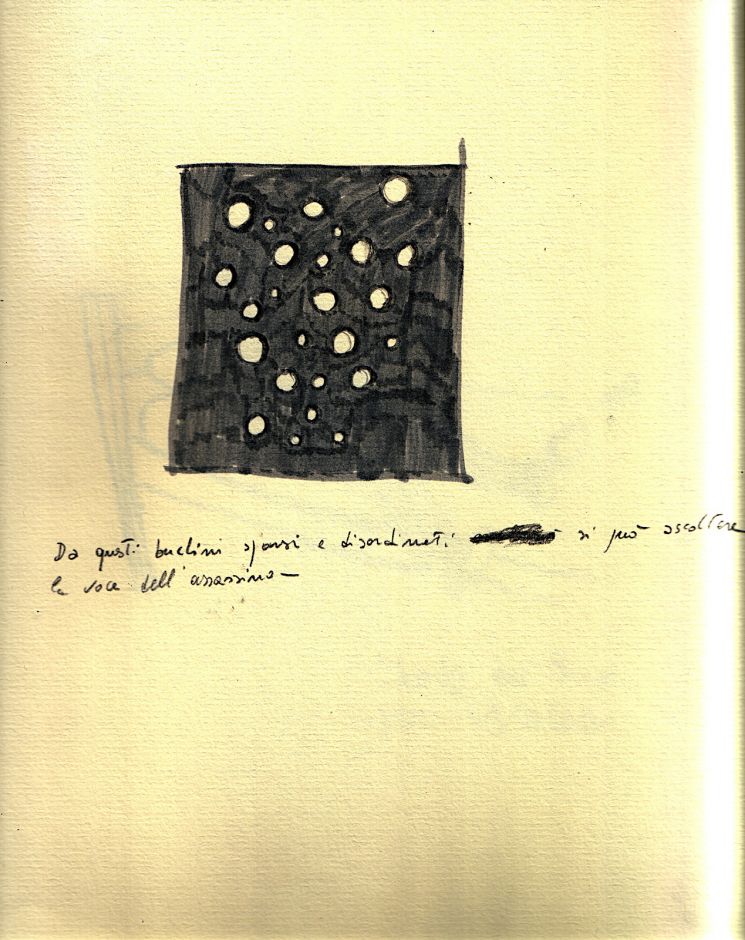 Da questi buchini sparsi e disordinati si può ascoltare
la voce dell'assassino—